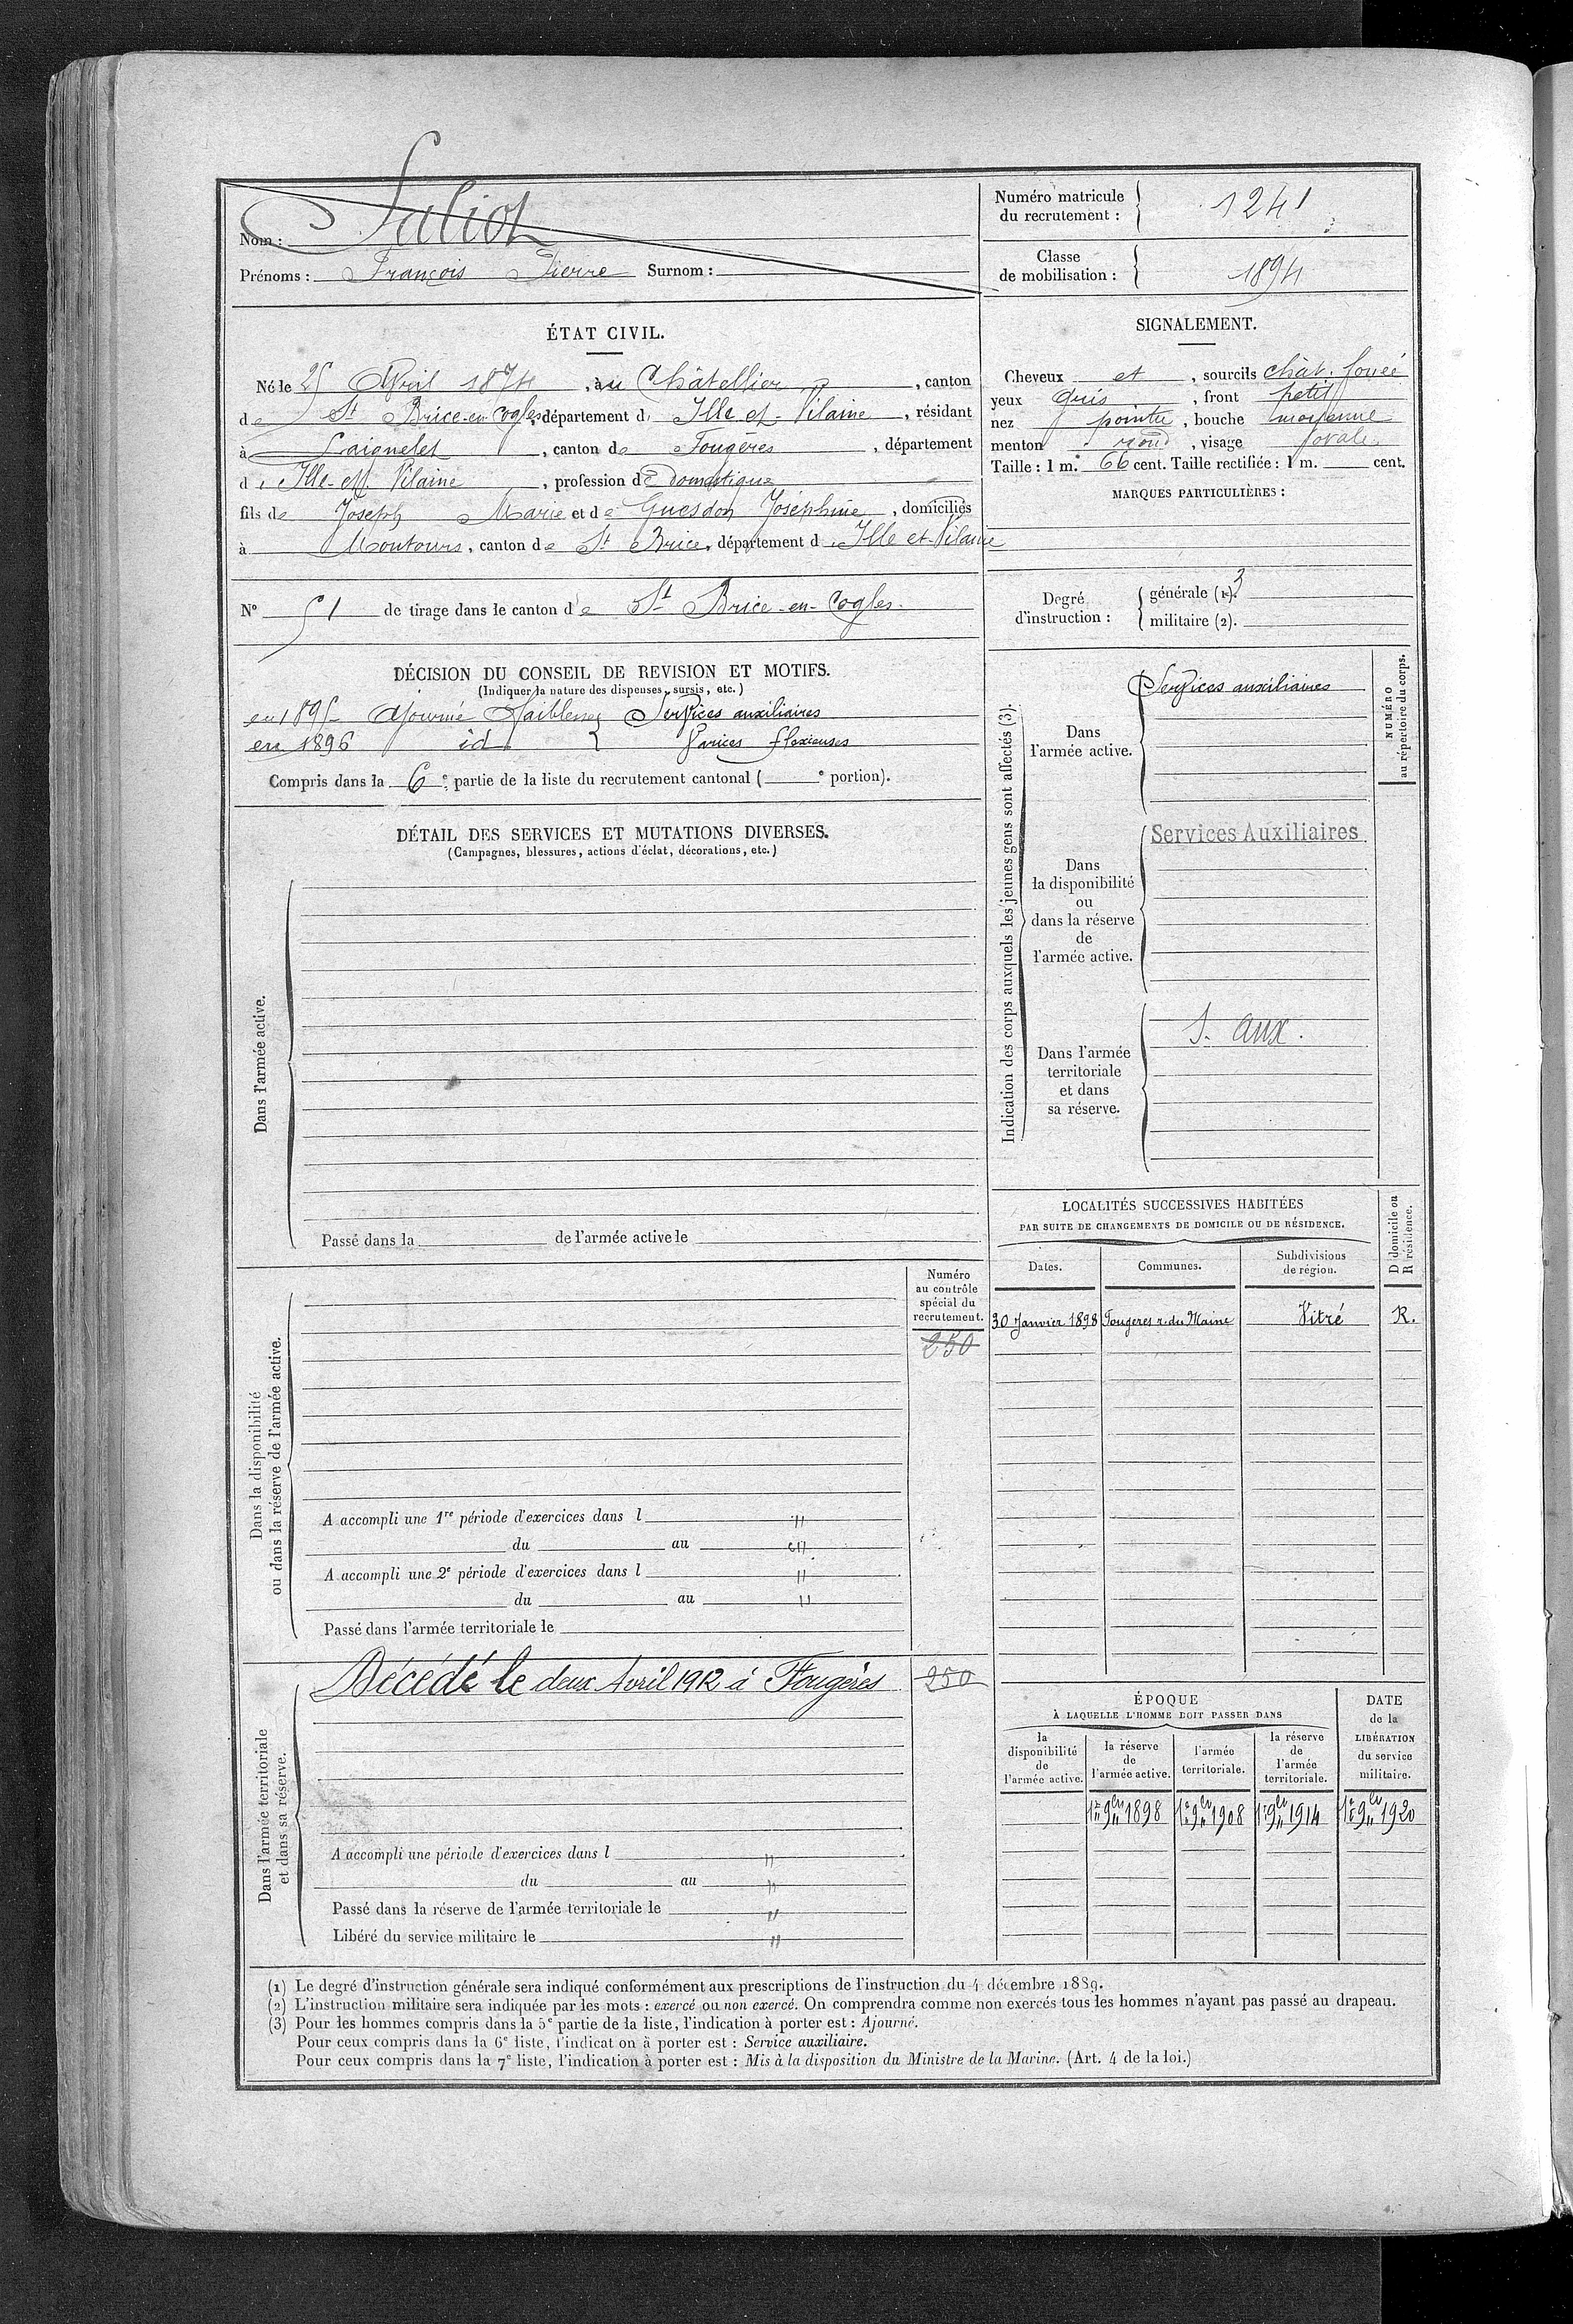 Nom : Saliot
Prénoms : François Pierre Surnom :
Numéro matricule du recrutement : 1241
Classe de mobilisation : 1894
ÉTAT CIVIL.
Né le 25 Avril 1874, à au Châtellier, canton
de St Brice-en-Cogles, département d'Ille et-Vilaine, résidant
à Laignelet, canton de Fougères, département
d'Ille-et-Vilaine, profession de Domestique
fils de Joseph Marie et de Guesdon Joséphine, domiciliés
à Montours, canton de St Brice, département d'Ille et-Vilaine
N° 51 de tirage dans le canton de St Brice-en-Cogles.
SIGNALEMENT.
Cheveux et, sourcils chât. foncé
yeux Gris, front petit
nez pointu, bouche moyenne
menton rond, visage ovale
Taille : 1 m. 66 cent. Taille rectifiée : 1 m. cent.
MARQUES PARTICULIÈRES :
Degré d'instruction : générale (1). 3
militaire (2).
DÉCISION DU CONSEIL DE REVISION ET MOTIFS.
(Indiquer la nature des dispenses, sursis, etc.)
en 1895 Ajourné Faiblesse Services auxiliaires
en 1896 id Varices flexieuses
Compris dans la 6e partie de la liste du recrutement cantonal ( e portion).
DÉTAIL DES SERVICES ET MUTATIONS DIVERSES.
(Campagnes, blessures, actions d'éclat, décorations, etc.)
Dans l'armée active.
Passé dans la de l'armée active le
Indication des corps auxquels les jeunes gens sont affectés (3).
NUMÉRO au répertoire du corps.
Dans l'armée active.
Services auxiliaires
Dans la disponibilité ou dans la réserve de l'armée active.
Services Auxiliaires
Dans l'armée territoriale et dans sa réserve.
S. aux.
LOCALITÉS SUCCESSIVES HABITÉES
PAR SUITE DE CHANGEMENTS DE DOMICILE OU DE RÉSIDENCE.
Dates. Communes. Subdivisions de région. D domicile ou R résidence.
30 Janvier 1898 Fougeres r. du Maine Vitré R.
Numéro au contrôle spécial du recrutement.
250
Dans la disponibilité ou dans la réserve de l'armée active.
A accompli une 1re période d'exercices dans l "
du au "
A accompli une 2e période d'exercices dans l "
du au "
Passé dans l'armée territoriale le
Dans l'armée territoriale et dans sa réserve.
Décédé le deux Avril 1912 à Fougères 250
A accompli une période d'exercices dans l "
du au "
Passé dans la réserve de l'armée territoriale le "
Libéré du service militaire le "
ÉPOQUE
À LAQUELLE L'HOMME DOIT PASSER DANS
la disponibilité de l'armée active.
la réserve de l'armée active.
l'armée territoriale.
la réserve de l'armée territoriale.
DATE de la LIBÉRATION du service militaire.
1er 9bre 1898 1er 9bre 1908 1er 9bre 1914 1er 9bre 1920
(1) Le degré d'instruction générale sera indiqué conformément aux prescriptions de l'instruction du 4 décembre 1889.
(2) L'instruction militaire sera indiquée par les mots : exercé ou non exercé. On comprendra comme non exercés tous les hommes n'ayant pas passé au drapeau.
(3) Pour les hommes compris dans la 5e partie de la liste, l'indication à porter est : Ajourné.
Pour ceux compris dans la 6e liste, l'indicat on à porter est : Service auxiliaire.
Pour ceux compris dans la 7e liste, l'indication à porter est : Mis à la disposition du Ministre de la Marine. (Art. 4 de la loi.)